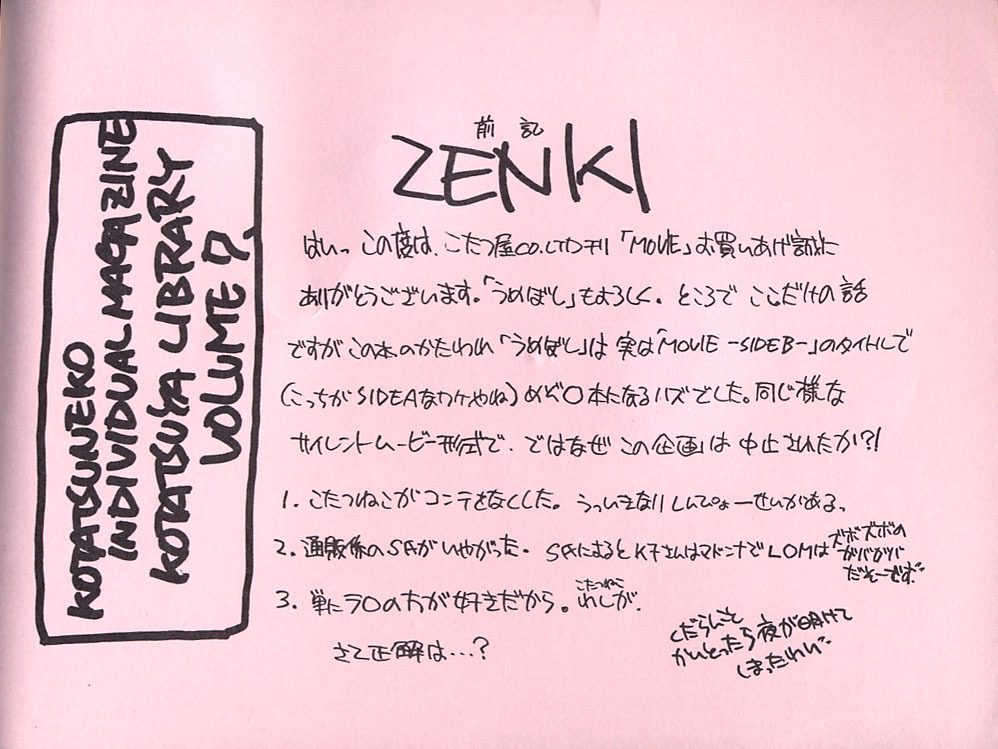 KOTATSUNEKO
INDIVIDUAL MAGAZINE
KOTATSUYA LIBRARY
VOLUME 7.
前記
ZENKI
はいっ この度は、こたつ屋CO.LTD刊「MOVIE」お買いあげ誠に
ありがとうございます。「うめぼし」もよろしく。ところで ここだけの話
ですが この本のかたわれ「うめぼし」は 実は「MOVIE -SIDEB-」のタイトルで
(こっちがSIDEAなワケやね)めぞ○本になるハズでした。同じ様な
サイレントムービー形式で。ではなぜ この企画は 中止されたか?!
1. こたつねこがコンテをなくした。うっいきなりしんぴょーせいがある。
2. 通販係のS氏がいやがった。S氏によると K子さんはマドンナで LOMは
ズボズボの
ガバガバ
だそーです。
3. 単にラ○の方が好きだから。わしが。
こたつねこ
さて正解は…?
くだらんこと
かいとったら夜が明けて
しまったわい